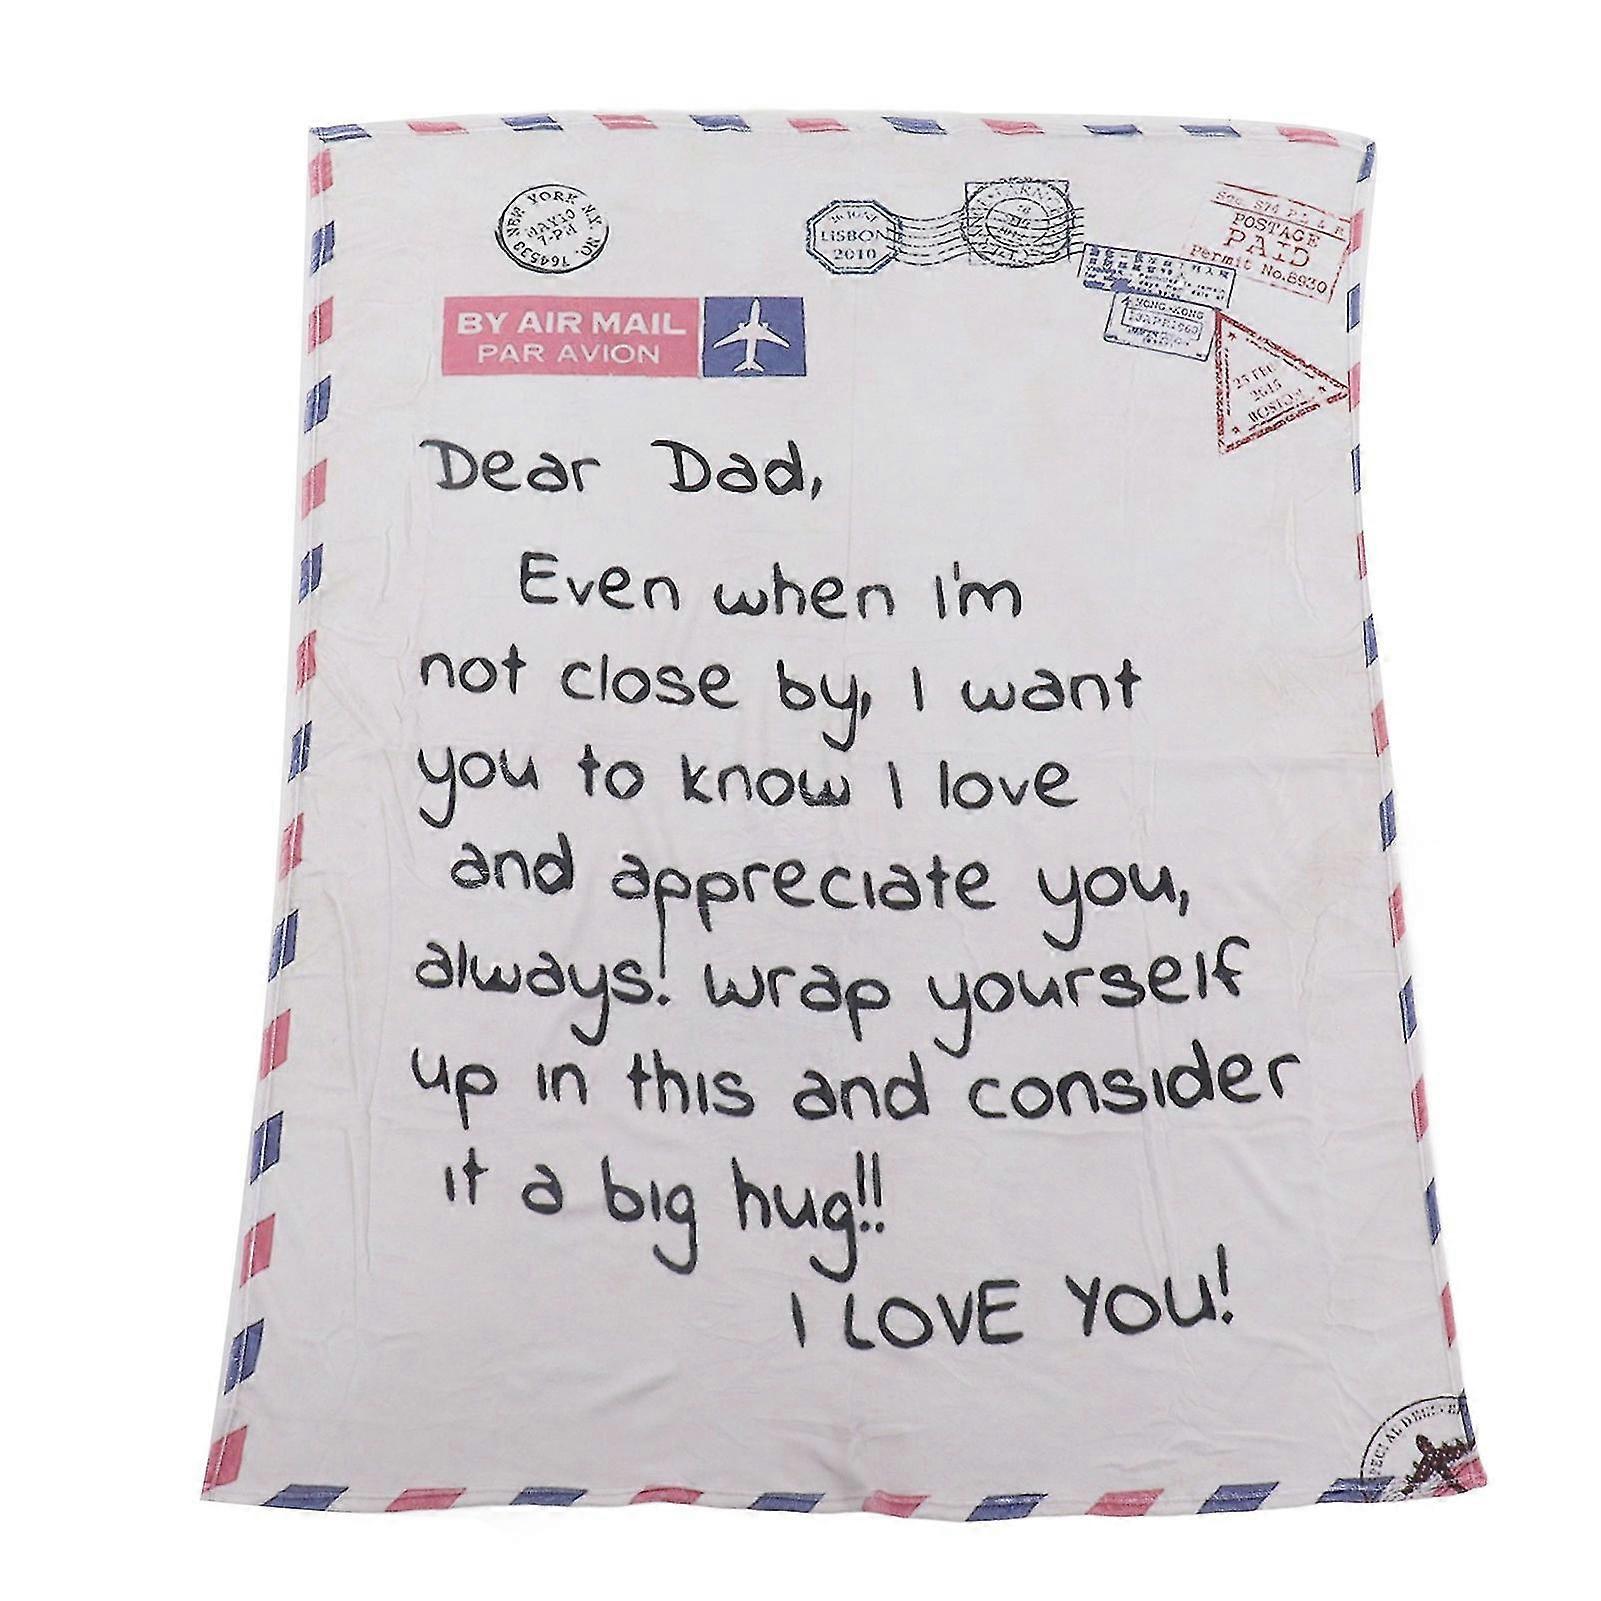 NEW YORK N.Y.
MAY 10
7-PM
NO. 164533
LISBON
2010
POSTAGE
PAID
Permit No.8930
HONG-KONG
25 FEB
2015
BOSTON
BY AIR MAIL
PAR AVION
Dear Dad,
Even when I'm
not close by, I want
you to know I love
and appreciate you,
always! wrap yourself
up in this and consider
it a big hug!!
I LOVE YOU!